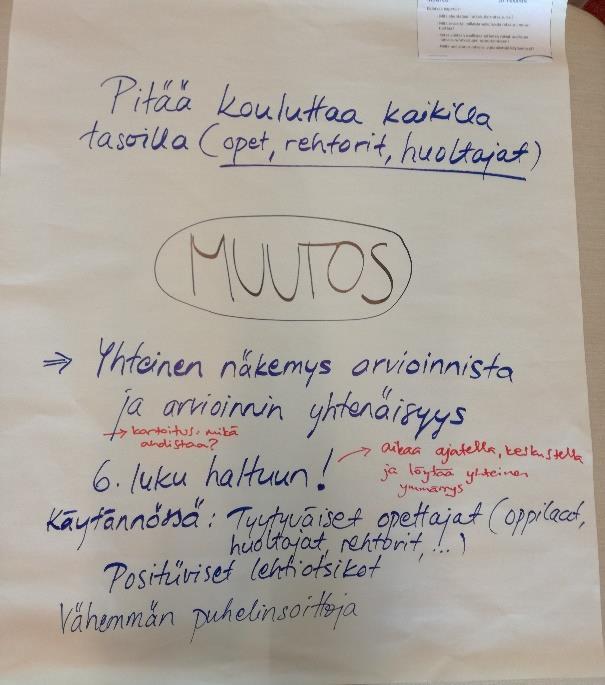 Pitää kouluttaa kaikilla
tasoilla (opet, rehtorit, huoltajat)
MUUTOS
⇒ Yhteinen näkemys arvioinnista
ja arvioinnin yhtenäisyys
→ kartoitus: mikä
ahdistaa?
6. luku haltuun!
→ aikaa ajatella, keskustella
ja löytää yhteinen
ymmärrys
Käytännössä: Tyytyväiset opettajat (oppilaat,
huoltajat, rehtorit, ...)
Positiiviset lehtiotsikot
Vähemmän puhelinsoittoja